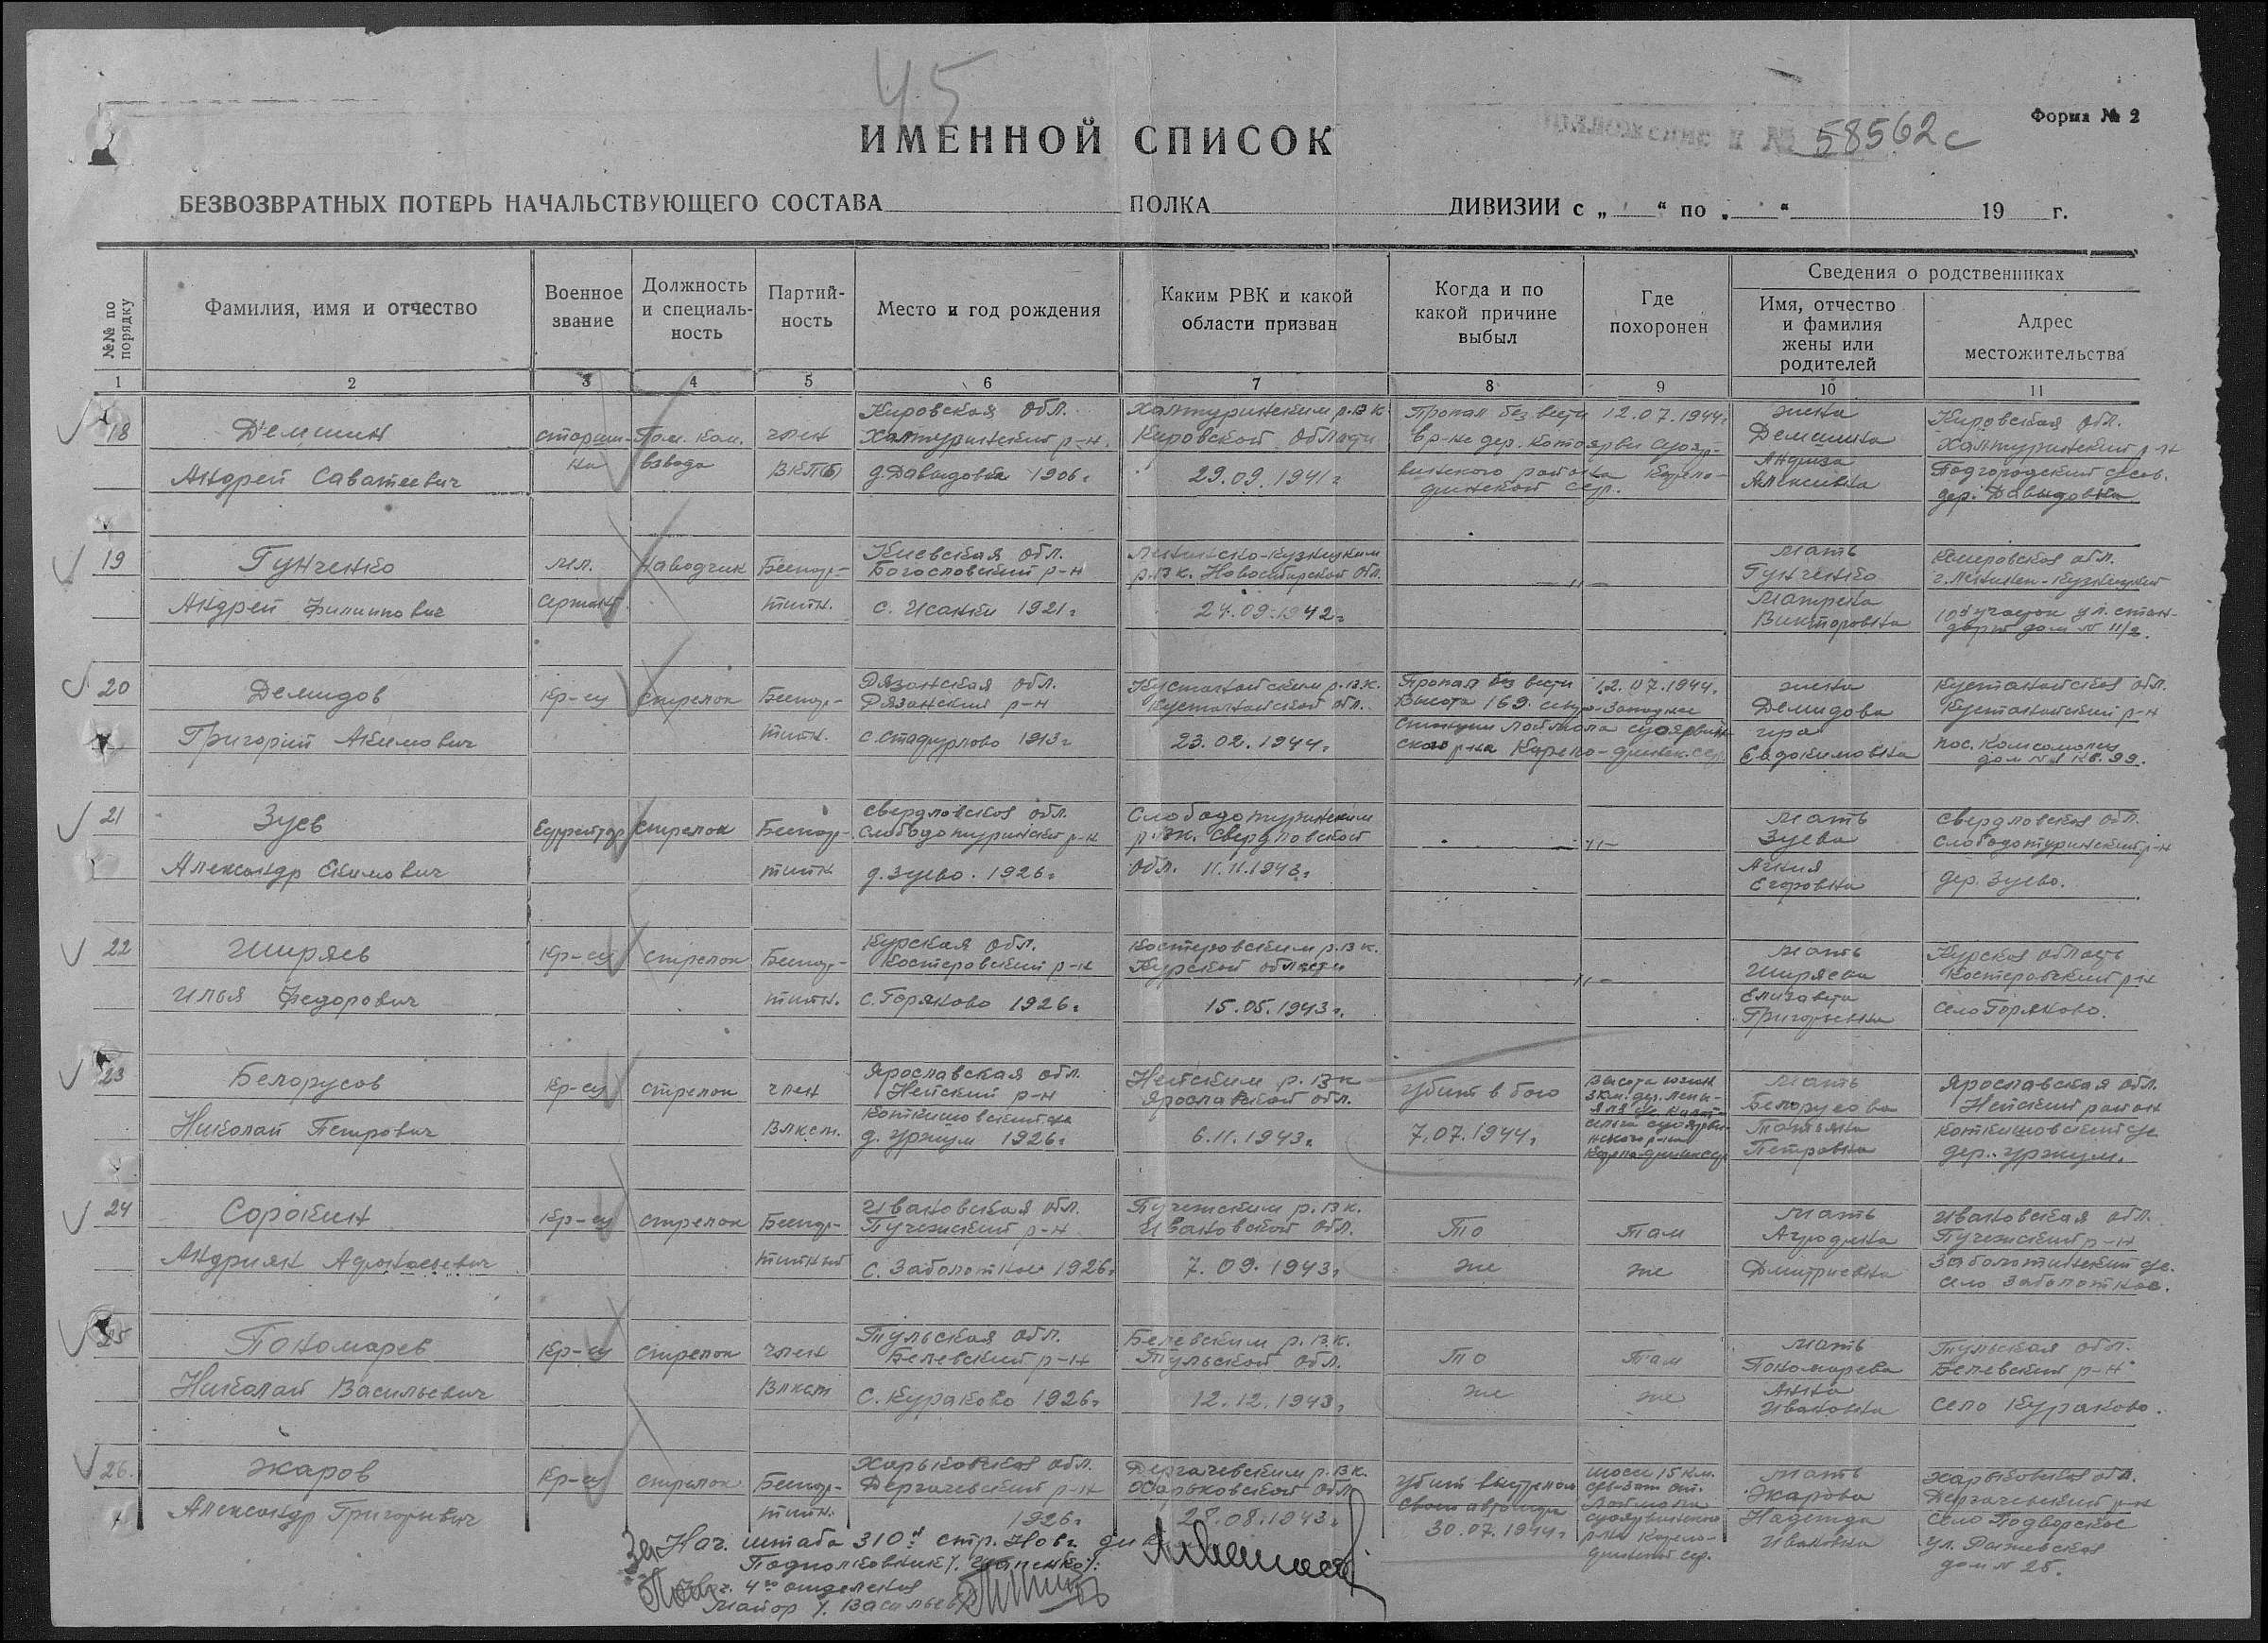 45
Форма № 2
ИМЕННОЙ СПИСОК
Приложение к № 58562с
БЕЗВОЗВРАТНЫХ ПОТЕРЬ НАЧАЛЬСТВУЮЩЕГО СОСТАВА ПОЛКА ДИВИЗИИ с „ “ по „ “ 19 г.
№№ по порядку
Фамилия, имя и отчество
Военное звание
Должность и специаль-ность
Партий-ность
Место и год рождения
Каким РВК и какой области призван
Когда и по какой причине выбыл
Где похоронен
Сведения о родственниках
Имя, отчество и фамилия жены или родителей
Адрес местожительства
1 2 3 4 5 6 7 8 9 10 11
18 Демшин Андрей Саватеевич
старши-на
Пом. ком. взвода
член ВКП(б)
Кировская обл. Халтуринский р-н. д. Давыдовка 1906г
Халтуринским р.в.к Кировской области 29.09.1941г
Пропал без вести 12.07.1944г
в р-не дер. Котоярви Суояр-
винского района Карело-
финской ССР.
жена Демшина Алексивна
Кировская обл. Халтуринский р-н Подгородский с/сов. дер. Давыдовка
19 Гунченко Андрей Филиппович
мл. сержант
наводчик
Беспар-тийн.
Киевская обл. Богословский р-н с. Исанки 1921г
Ленинско-кузнецким р.в.к. Новосибирской обл. 24.09.1942г
-"-
мать Гунченко Матрена Викторовна
Кемеровская обл. г. Ленинск-Кузнецкий 10й участок ул. стан-дарт дом № 11/2.
20 Демидов Григорий Акимович
Кр-ец
стрелок
Беспар-тийн.
Рязанская обл. Рязанский р-н 1913г
Кустанайским р.в.к. Кустанайской обл. 23.02.1944г
Пропал без вести 12.07.1944.
Высота 169. северо-западнее
станции Лоймола Суоярвин-
ского р-на Карело-финск. ССР
жена Демидова Евдокимовна
Кустанайская обл. Кустанайский р-н пос. Комсомолец дом №1 кв. 99.
21 Зуев Александр Екимович
Ефрейтор
стрелок
Беспар-тийн
Свердловская обл. Слободотуринский р-н д. Зуево. 1926г
Слободотуринским р.в.к. Свердловской обл. 11.11.1943г
-"-
мать Зуева Егоровна
Свердловская обл. Слободотуринский р-н дер. Зуево.
22 Ширяев Илья Федорович
Кр-ец
стрелок
Беспар-тийн.
Курская обл. Костеровский р-н с. Горяково 1926г
Костеровским р.в.к. Курской области 15.05.1943г.
-"-
мать Ширяева Елизавета Григорьевна
Курская область Костеровский р-н село Горяково.
23 Белорусов Николай Петрович
Кр-ец
стрелок
член ВЛКСМ.
Ярославская обл. Нейский р-н Коткишовский с/с д. Уржум 1926г
Нейским р.в.к Ярославской обл. 6.11.1943г.
Убит в бою 7.07.1944г
Высота южн 3 км. дер.
Карело-финск ССР
мать Белорусова Татьяна Петровна
Ярославская обл. Нейский район Коткишовский с/с дер. Уржум.
24 Сорокин Андриян Афонасьевич
Кр-ец
стрелок
Беспар-тийный
Ивановская обл. Пучежский р-н с. Заболотное 1926г
Пучежским р.в.к. Ивановской обл. 7.09.1943г
То же
Там же
мать Дмитриевна
Ивановская обл. Пучежский р-н Заболотнский с/с. село Заболотное.
25 Пономарев Николай Васильевич
Кр-ец
стрелок
член ВЛКСМ
Тульская обл. Белевский р-н с. Кураково 1926г
Белевским р.в.к. Тульской обл. 12.12.1943г
То же
Там же
мать Пономарева Анна Ивановна
Тульская обл. Белевский р-н село Кураково.
26. Жаров Александр Григорьевич
Кр-ец
стрелок
Беспар-тийн.
Харьковская обл. Дергачевский р-н 1926г
Дергачевским р.в.к. Харьковской обл 28.08.1943г
Убит выстрелом 30.07.1944г
шоссе 15 км. сев-зап ст. Лоймола Суоярвинского р-на Карело-финской ССР.
мать Жарова Надежда Ивановна
Харьковская обл. Дергачевский р-н село Подворское дом № 25.
Зам Нач. штаба 310й стр. Новг. див
Подполковник /. Шапенко /.
Нач. 4го отделения
Майор /. Васильев /